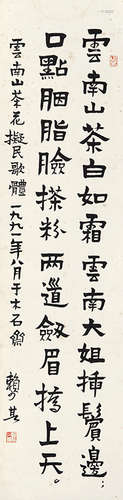 雲南山茶白如霜雲南大姐插鬢邊;
口點胭脂臉搽粉兩道劍眉搞上天。
雲南山茶花擬民歌體一九九一年八月于木石齋 賴少其